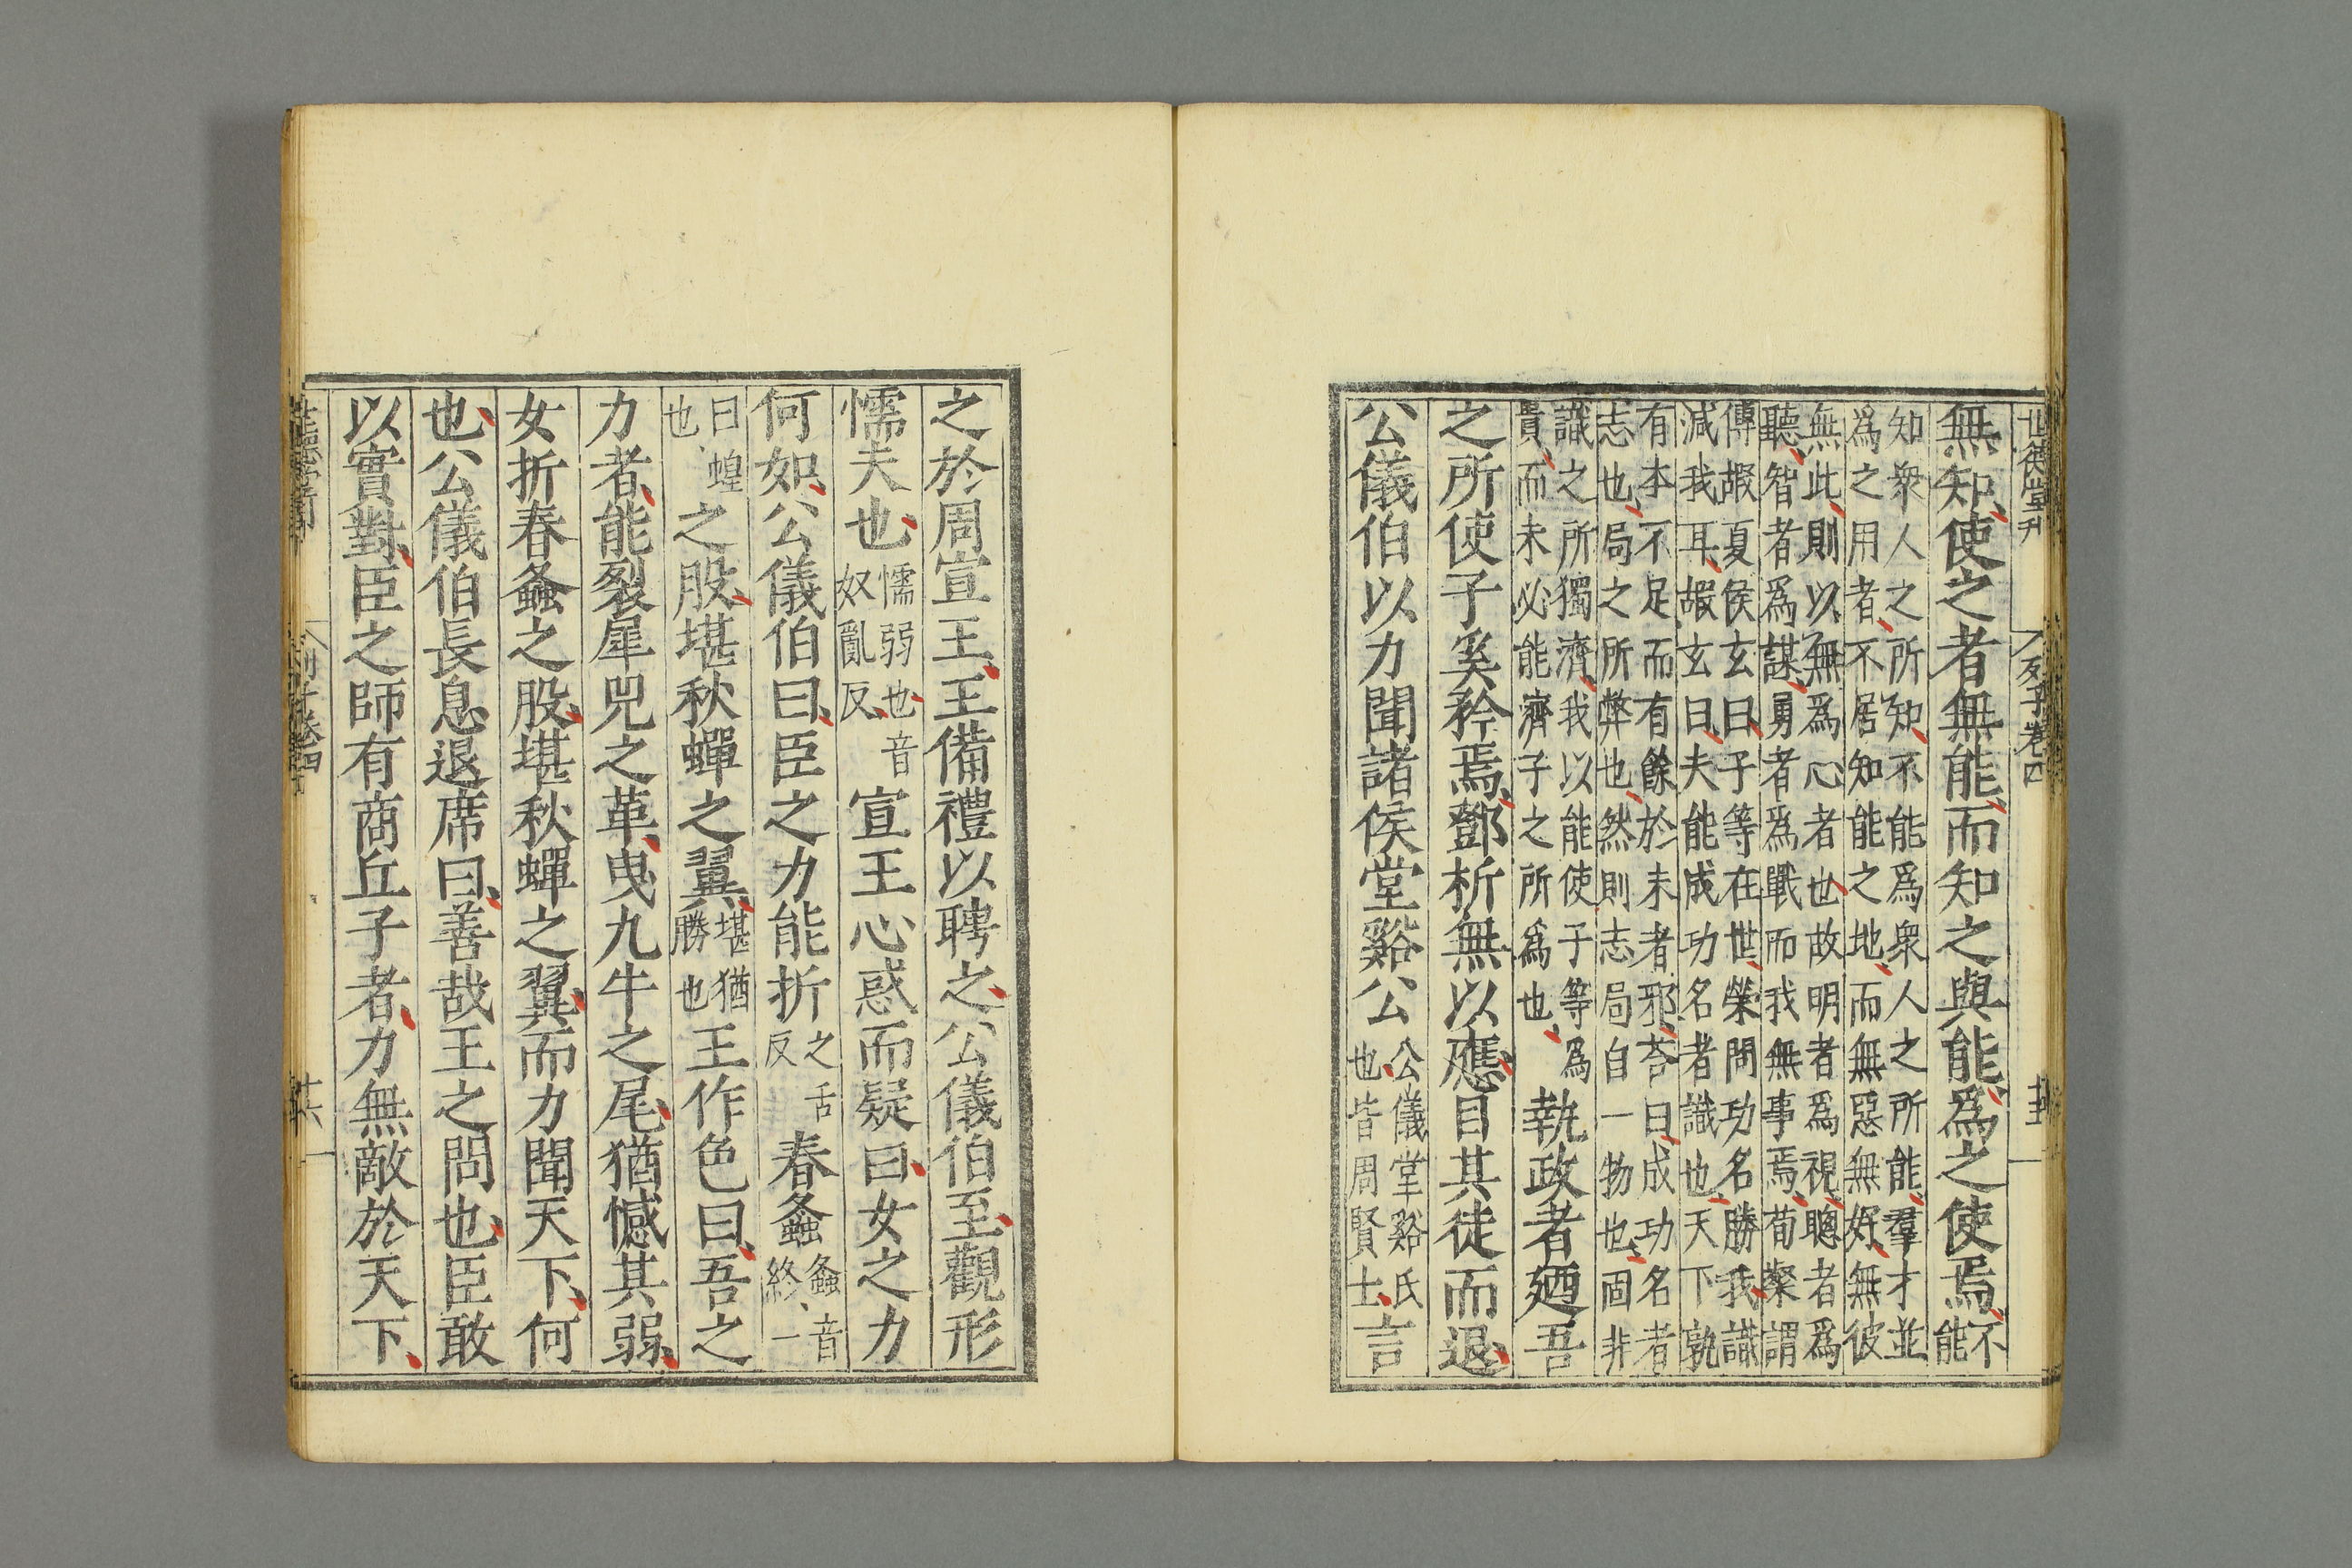 世德堂刊 列子卷四 十五
無知使之者無能而知之與能爲之使焉不能
知衆人之所知不能爲衆人之所能羣才並
爲之用者不居知能之地而無惡無好無彼
無此則以無爲心者也故明者爲視聰者爲
聽智者爲謀勇者爲戰而我無事焉荀粲謂
傅嘏夏侯玄曰子等在世榮問功名勝我識
減我耳嘏玄曰夫能成功名者識也天下孰
有本不足而有餘於末者邪荅曰成功名者
志也局之所弊也然則志局自一物也固非
識之所獨濟我以能使子等爲
貴而未必能濟子之所爲也執政者廼吾
之所使子奚矜焉鄧析無以應目其徒而退
公儀伯以力聞諸侯堂谿公公儀堂谿氏也皆周賢士言
之於周宣王王備禮以聘之公儀伯至觀形
懦夫也懦弱也音奴亂反宣王心惑而疑曰女之力
何如公儀伯曰臣之力能折之舌反春螽螽音終一
曰蝗也之股堪秋蟬之翼堪猶勝也王作色曰吾之
力者能裂犀兕之革曳九牛之尾猶憾其弱
女折春螽之股堪秋蟬之翼而力聞天下何
也公儀伯長息退席曰善哉王之問也臣敢
以實對臣之師有商丘子者力無敵於天下